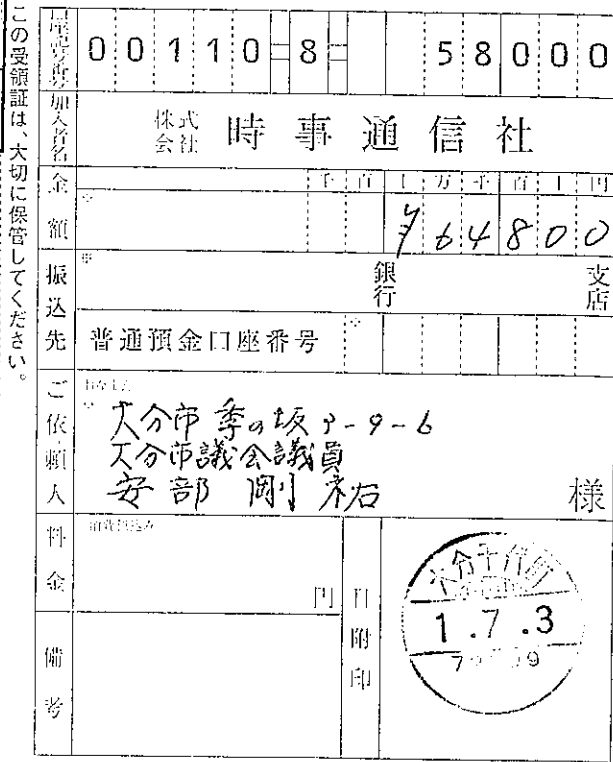 この受領証は、大切に保管してください。
口座記号番号 00110-8-58000
加入者名 株式会社 時事通信社
金額 千百十万千百十円
¥64800
振込先 銀行 支店
普通預金口座番号
ご依頼人 おなまえ
大分市 季の坂3-9-6
大分市議会議員
安部 剛祐 様
料金 消費税込み 円
備考
日附印
大分千代町
1.7.3